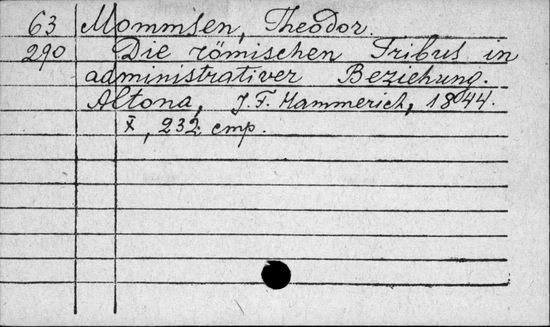 63 Mommsen, Theodor.
290 Die römischen Tribus in
administrativer Beziehung.
Altona, J. F. Hammerich, 1844.
X, 232 cmp.